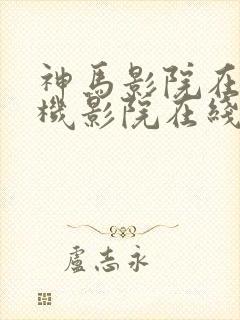 神馬影院在
機影院在綫
盧志永